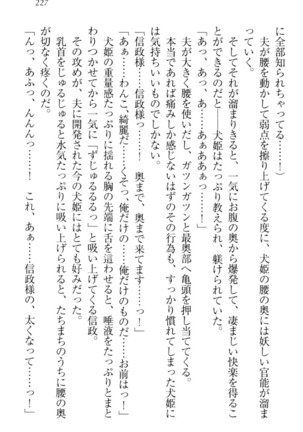 に全部知られちゃってる……)
　夫が腰を動かして弱点を擦り上げてくる度に、犬姫の腰の奥には妖しい官能が溜まっていく。
　そしてそれが溜まりきると、一気にお腹の奥から爆発して、凄まじい快楽を得ることができるのだと――犬姫はたっぷり教えられ、躾けられていた。
「あっ、あっ……あぁあああぁっ……！
　夫が大きく腰を使いだし、ガツンガツンと最奥部へ亀頭を押し当ててくる。
　本当であれば痛みしか感じないはずのその行為も、すっかり慣れてしまった犬姫には気持ちいいものでしかない。
「信政様……信政様っ……！　奥まで、奥まで来てます……っ！」
「あぁ……わんこ、綺麗だ……くそっ、俺だけの……俺だけのものだ……お前はっ！」
　犬姫の重量感たっぷりに揺れる胸の先端に舌を這わせると、唾液をたっぷりとまとわりつかせてから一気に「ずじゅるるるっ」と吸い上げる信政。
　その攻めが、夫に開発された今の犬姫にはとても好みだった。
　乳首をじゅるじゅると水気たっぷりに吸い上げられると、たちまちのうちに腰の奥が切なく疼くのだ。
「んっ、あふっ、んんんっ……！　これ、あぁ……信政様の、太くなって……っ！」
227